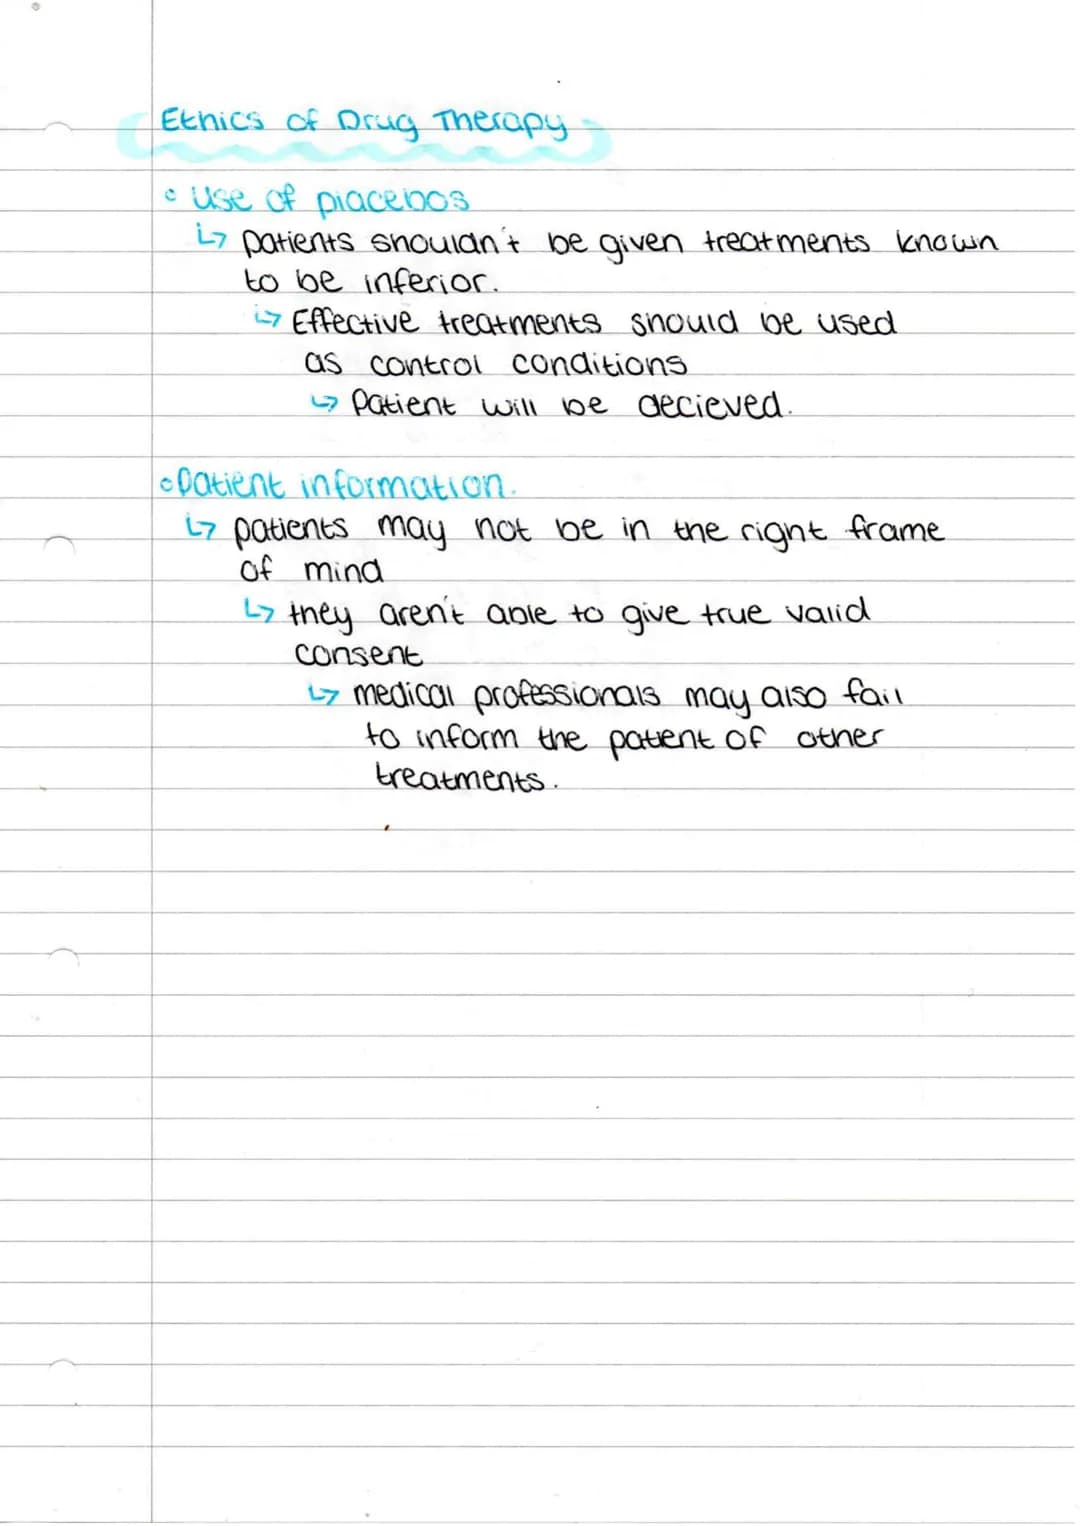 Ethics of Drug Therapy
Use of placebos
↳ patients shouldn't be given treatments known
to be inferior.
↳ Effective treatments should be used
as control conditions
↳ Patient will be decieved.
Patient information.
↳ patients may not be in the right frame
of mind
↳ they aren't able to give true valid
consent
↳ medical professionals may also fail
to inform the patient of other
treatments.